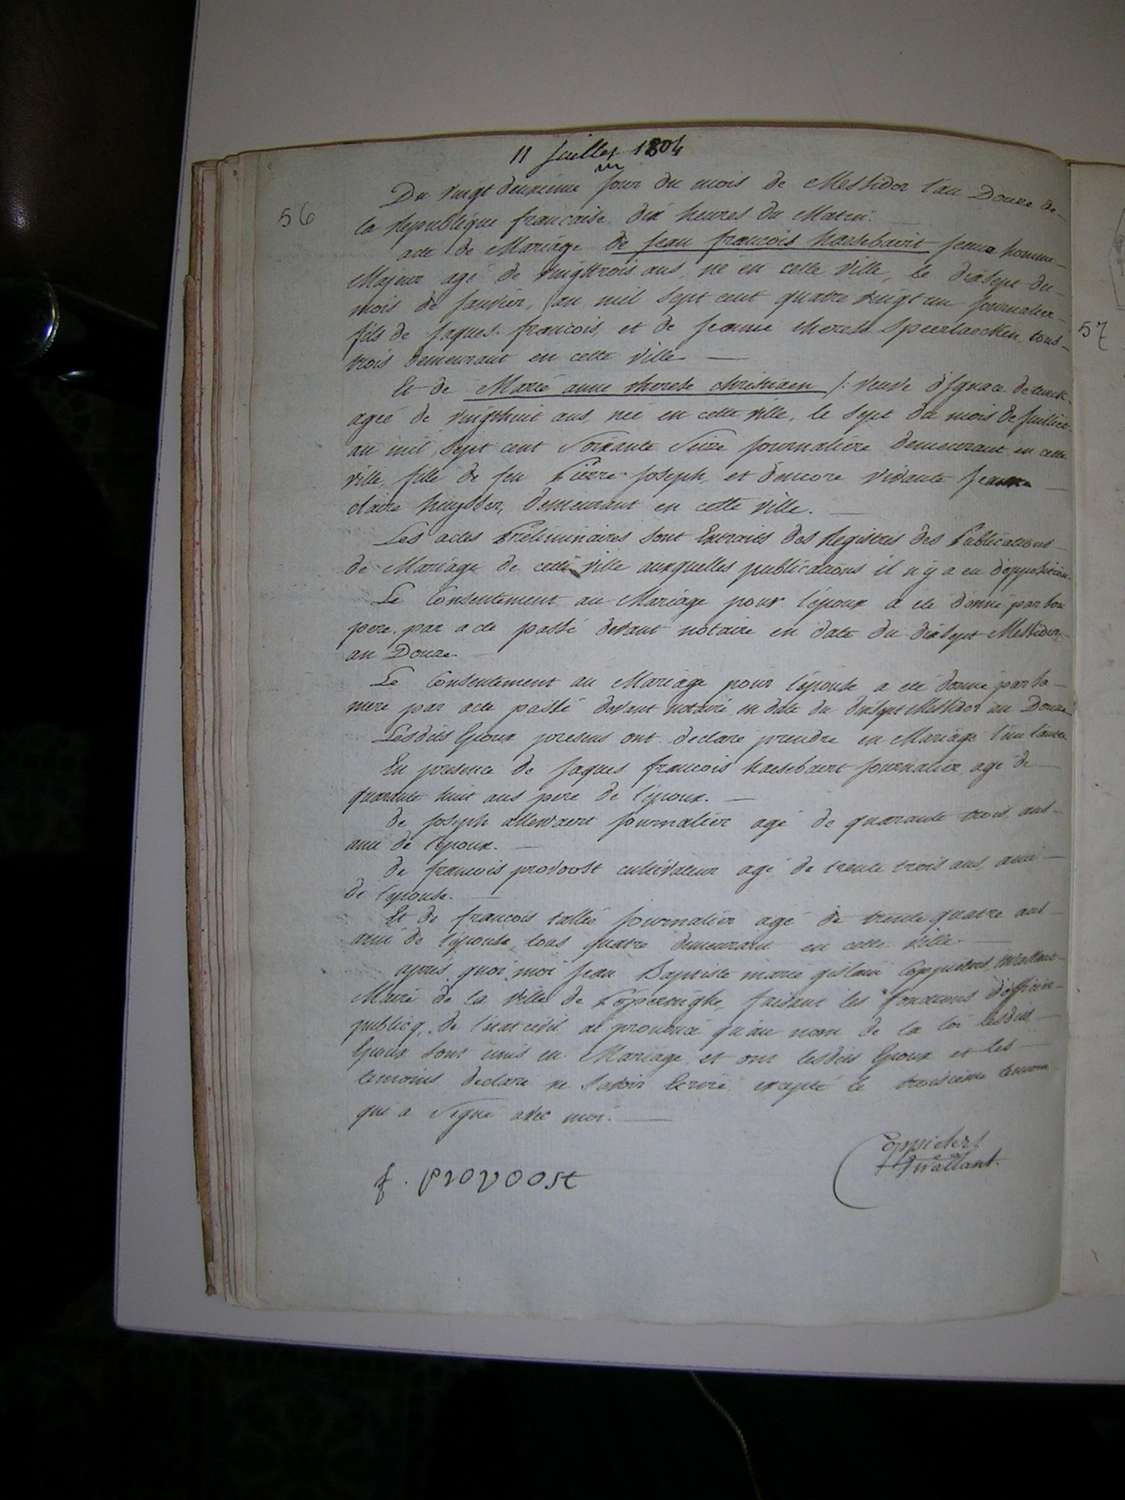 11 Juillet 1804
56
Du vingt deuxieme jour du mois de Messidor l'an Douze de
la Republique francaise dix heures du Matin.
acte de Mariage de Jean francois haesebaert jeune homme
Majeur agé de vingttrois ans, né en cette ville, le dixsept du
mois de janvier, an mil sept cent quatre vingt un journalier
fils de Jaques francois, et de Jeanne therese Speerbroecken tous
trois demeurant en cette ville
Et de Marie anne therese christiaen /: veuve d'Ignace
ageé de vingthuit ans, neé en cette ville, le sept du mois de Juillet
an mil sept cent Soixante Seize journaliere demeurant en cette
ville, fille de feu Pierre Joseph, et d'encore vivante Jeanne
claire huyghe, demeurant en cette ville.
Les actes Preliminaires sont Extraits des Registres des Publications
de Mariage de cette ville auxquelles publications il n'y a eu d'opposition
Le Consentement au Mariage pour l'époux a été donné par son
pere par acte passé devant notaire en date du dixsept Messidor
an Douze.
Le Consentement au Mariage pour l'épouse a été donné par sa
mere par acte passé devant notaire en date du dixsept Messidor an Douze
Lesdits Epoux presens ont declaré prendre en Mariage l'un l'autre
En presence de Jaques francois haesebaert journalier agé de
quarante huit ans pere de l'epoux.
de Joseph allewaert journalier agé de quarante trois ans
ami de l'epoux.
de francois provoost cultivateur agé de trente trois ans, ami
de l'epouse.
Et de francois tallée journalier agé de trente quatre ans
ami de l'épouse, tous quatre demeurant en cette ville.
apres quoi, moi Jean Baptiste marie gislain Coppieters Wallant
Maire de la ville de Poperinghe, faisant les fonctions d'officier
publicq de l'état civil ai prononcé qu'au nom de la loi lesdits
Epoux sont unis en Mariage, et ont lesdits Epoux et les
temoins declaré ne Savoir Ecrire excepté le troisieme temoin
qui a Signé avec moi.
f. Provoost
Coppieters
Wallant.
57